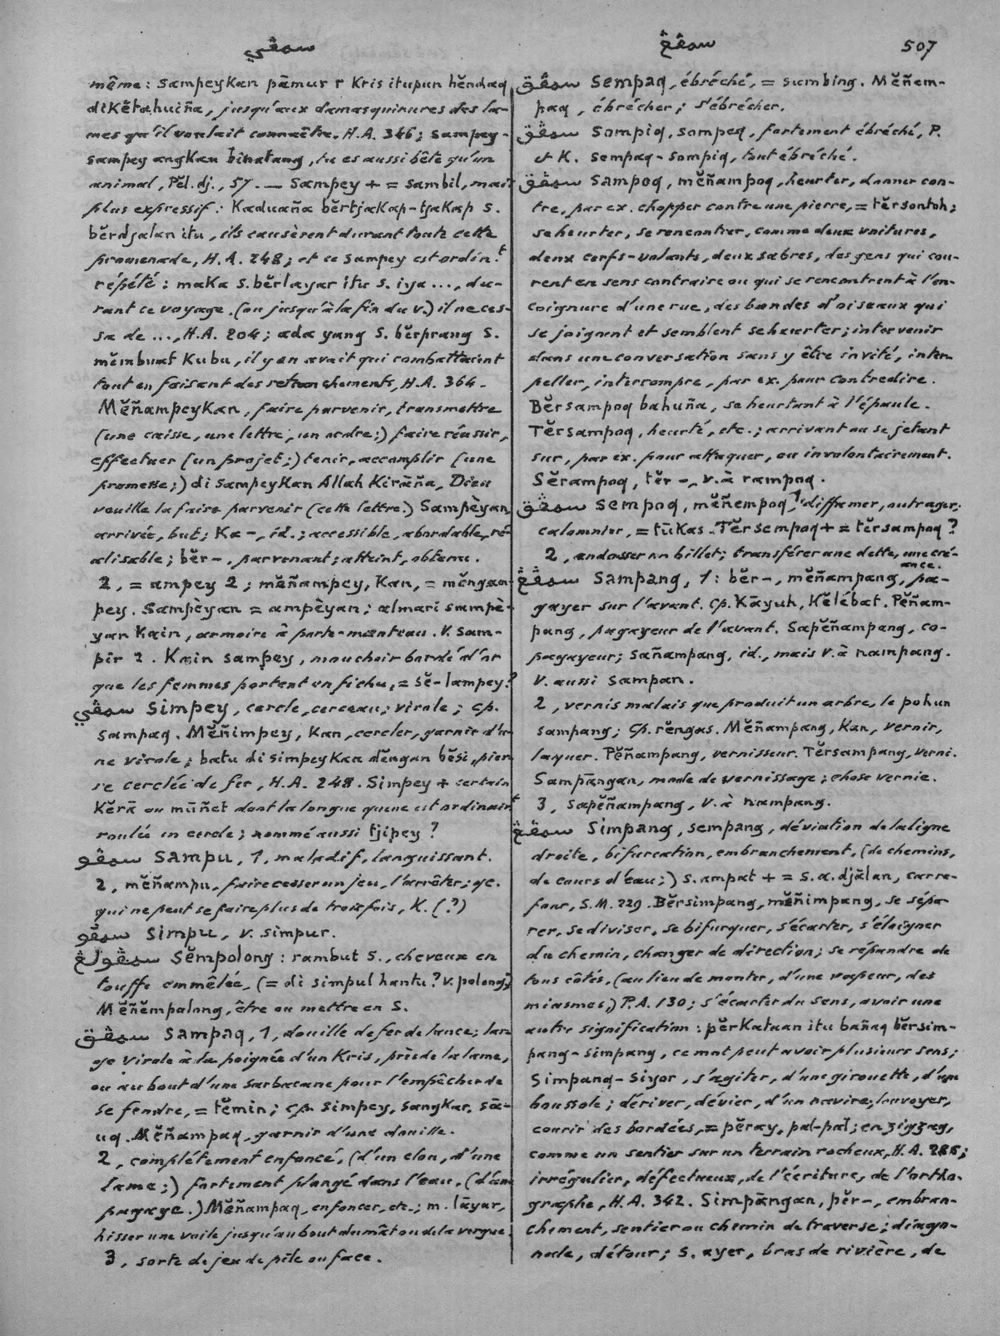 سمڤي
سمڤڠ
507
même : sampeykan pāmur r kris itupun hĕndaq
dikĕtahuiña, jusqu'aux damasquinures des la-
mes qu'il voulait connaître, H.A. 346; sampey-
sampey angkau binatang, tu es aussi bête qu'un
animal, Pĕl. dj., 57. — Sampey + = sambil, mais
plus expressif : Kaduaña bĕrtjakap-tjakap s.
bĕrdjalan itu, ils causèrent durant toute cette
promenade, H.A. 248; et ce sampey est ordin.t
répété : maka s. bĕrlayar itu s. iya ..., du-
rant ce voyage (ou jusqu'à la fin du v.) il ne ces-
sa de ..., H.A. 204; ada yang s. bĕrprang s.
mĕmbuat kubu, il y en avait qui combattaient
tout en faisant des retranchements, H.A. 364.
Mĕñampeykan, faire parvenir, transmettre
(une caisse, une lettre, un ordre;) faire réussir,
effectuer (un projet;) tenir, accomplir (une
promesse;) di sampeykan Allah kirāña, Dieu
veuille la faire parvenir (cette lettre.) Sampèyan,
arrivée, but; Ka-, id.; accessible, abordable, ré-
alisable; bĕr-, parvenant; atteint, obtenu.
2, = ampey 2; mĕñampey, Kan, = mĕngam-
pey. Sampèyan = ampèyan; almari sampè-
yan kain, armoire à porte-manteau. V. sam-
pir 2. Kain sampey, mouchoir bordé d'or
que les femmes portent en fichu, = sĕ-lampey?
سمڤي simpey, cercle, cerceau; virole; cp.
sampaq. Mĕñimpey, Kan, cercler, garnir d'u-
ne virole; batu di simpeykan dĕngan bĕsi, pier-
re cerclée de fer, H.A. 248. Simpey + certain
kĕrā ou mūñet dont la longue queue est ordinairt
roulée en cercle; nommé aussi tjipey?
سمڤو sampu, 1, maladif, languissant.
2, mĕñampu, faire cesser un jeu, l'arrêter; qc.
qui ne peut se faire plus de trois fois, K. (?)
سمڤو simpu, v. simpur.
سمڤولڠ sĕmpolong : rambut s., cheveux en
touffe emmêlée, (= di simpul hantu? v. polong?)
Mĕñĕmpolong, être ou mettre en s.
سمڤق sampaq, 1, douille de fer de lance; lar-
ge virole à la poignée d'un kris, près de la lame,
ou au bout d'une sarbacane pour l'empêcher de
se fendre, = tĕmin; cp. simpey, sangkar, sā-
uq. Mĕñampaq, garnir d'une douille.
2, complétement enfoncé, (d'un clou, d'une
lame;) fortement plongé dans l'eau, (d'une
pagaye.) Mĕñampaq, enfoncer, etc.; m. lāyar,
hisser une voile jusqu'au bout du mât ou de la vergue.
3, sorte de jeu de pile ou face.
سمڤق sempaq, ébréché, = sumbing. Mĕñem-
paq, ébrécher; s'ébrécher.
سمڤق sompiq, sompeq, fortement ébréché, P.
et K. sempaq-sompiq, tout ébréché.
سمڤق sampoq, mĕñampoq, heurter, donner con-
tre, par ex. chopper contre une pierre, = tĕrsontoh;
se heurter, se rencontrer, comme deux voitures,
deux cerfs-volants, deux sabres, des gens qui cou-
rent en sens contraire ou qui se rencontrent à l'en-
coignure d'une rue, des bandes d'oiseaux qui
se joignent et semblent se heurter; intervenir
dans une conversation sans y être invité, inter-
peller, interrompre, par ex. pour contredire.
Bĕrsampoq bahuña, se heurtant à l'épaule.
Tĕrsampoq, heurté, etc.; arrivant ou se jetant
sur, par ex. pour attaquer, ou involontairement.
Sĕrampoq, tĕr-, v. à rampoq.
سمڤق sempoq, mĕñempoq, 1, diffamer, outrager,
calomnier, = tūkas. Tĕrsempoq + = tĕrsampoq?
2, endosser un billet; transférer une dette, une cré-
ance.
سمڤڠ sampang, 1 : bĕr-, mĕñampang, pa-
gayer sur l'avant. cp. Kāyuh, Kĕlébat. Pĕñam-
pang, pagayeur de l'avant. Sapĕñampang, co-
pagayeur; sañampang, id., mais v. à nampang.
V. aussi sampan.
2, vernis malais que produit un arbre, le pohun
sampang; cp. rĕngas. Mĕñampang, Kan, vernir,
laquer. Pĕñampang, vernisseur. Tĕrsampang, verni.
Sampāngan, mode de vernissage; chose vernie.
3, sapĕñampang, v. à nampang.
سمڤڠ simpang, sempang, déviation de la ligne
droite, bifurcation, embranchement, (de chemins,
de cours d'eau;) s. ampat + = s. a. djālan, carre-
four, S.M. 229. Bĕrsimpang, mĕñimpang, se sépa-
rer, se diviser, se bifurquer, s'écarter, s'éloigner
du chemin, changer de direction; se répandre de
tous côtés, (au lieu de monter, d'une vapeur, des
miasmes,) P.A. 130; s'écarter du sens, avoir une
autre signification : pĕrkataan itu bañaq bĕrsim-
pang-simpang, ce mot peut avoir plusieurs sens;
Simpang-siyor, s'agiter, d'une girouette, d'une
boussole; dériver, dévier, d'un navire; louvoyer,
courir des bordées, = pĕray, pal-pal; en zigzag,
comme un sentier sur un terrain rocheux, H.A. 285;
irrégulier, défectueux, de l'écriture, de l'ortho-
graphe, H.A. 342. Simpāngan, pĕr-, embran-
chement, sentier ou chemin de traverse; diago-
nale, détour; s. ayer, bras de rivière, de